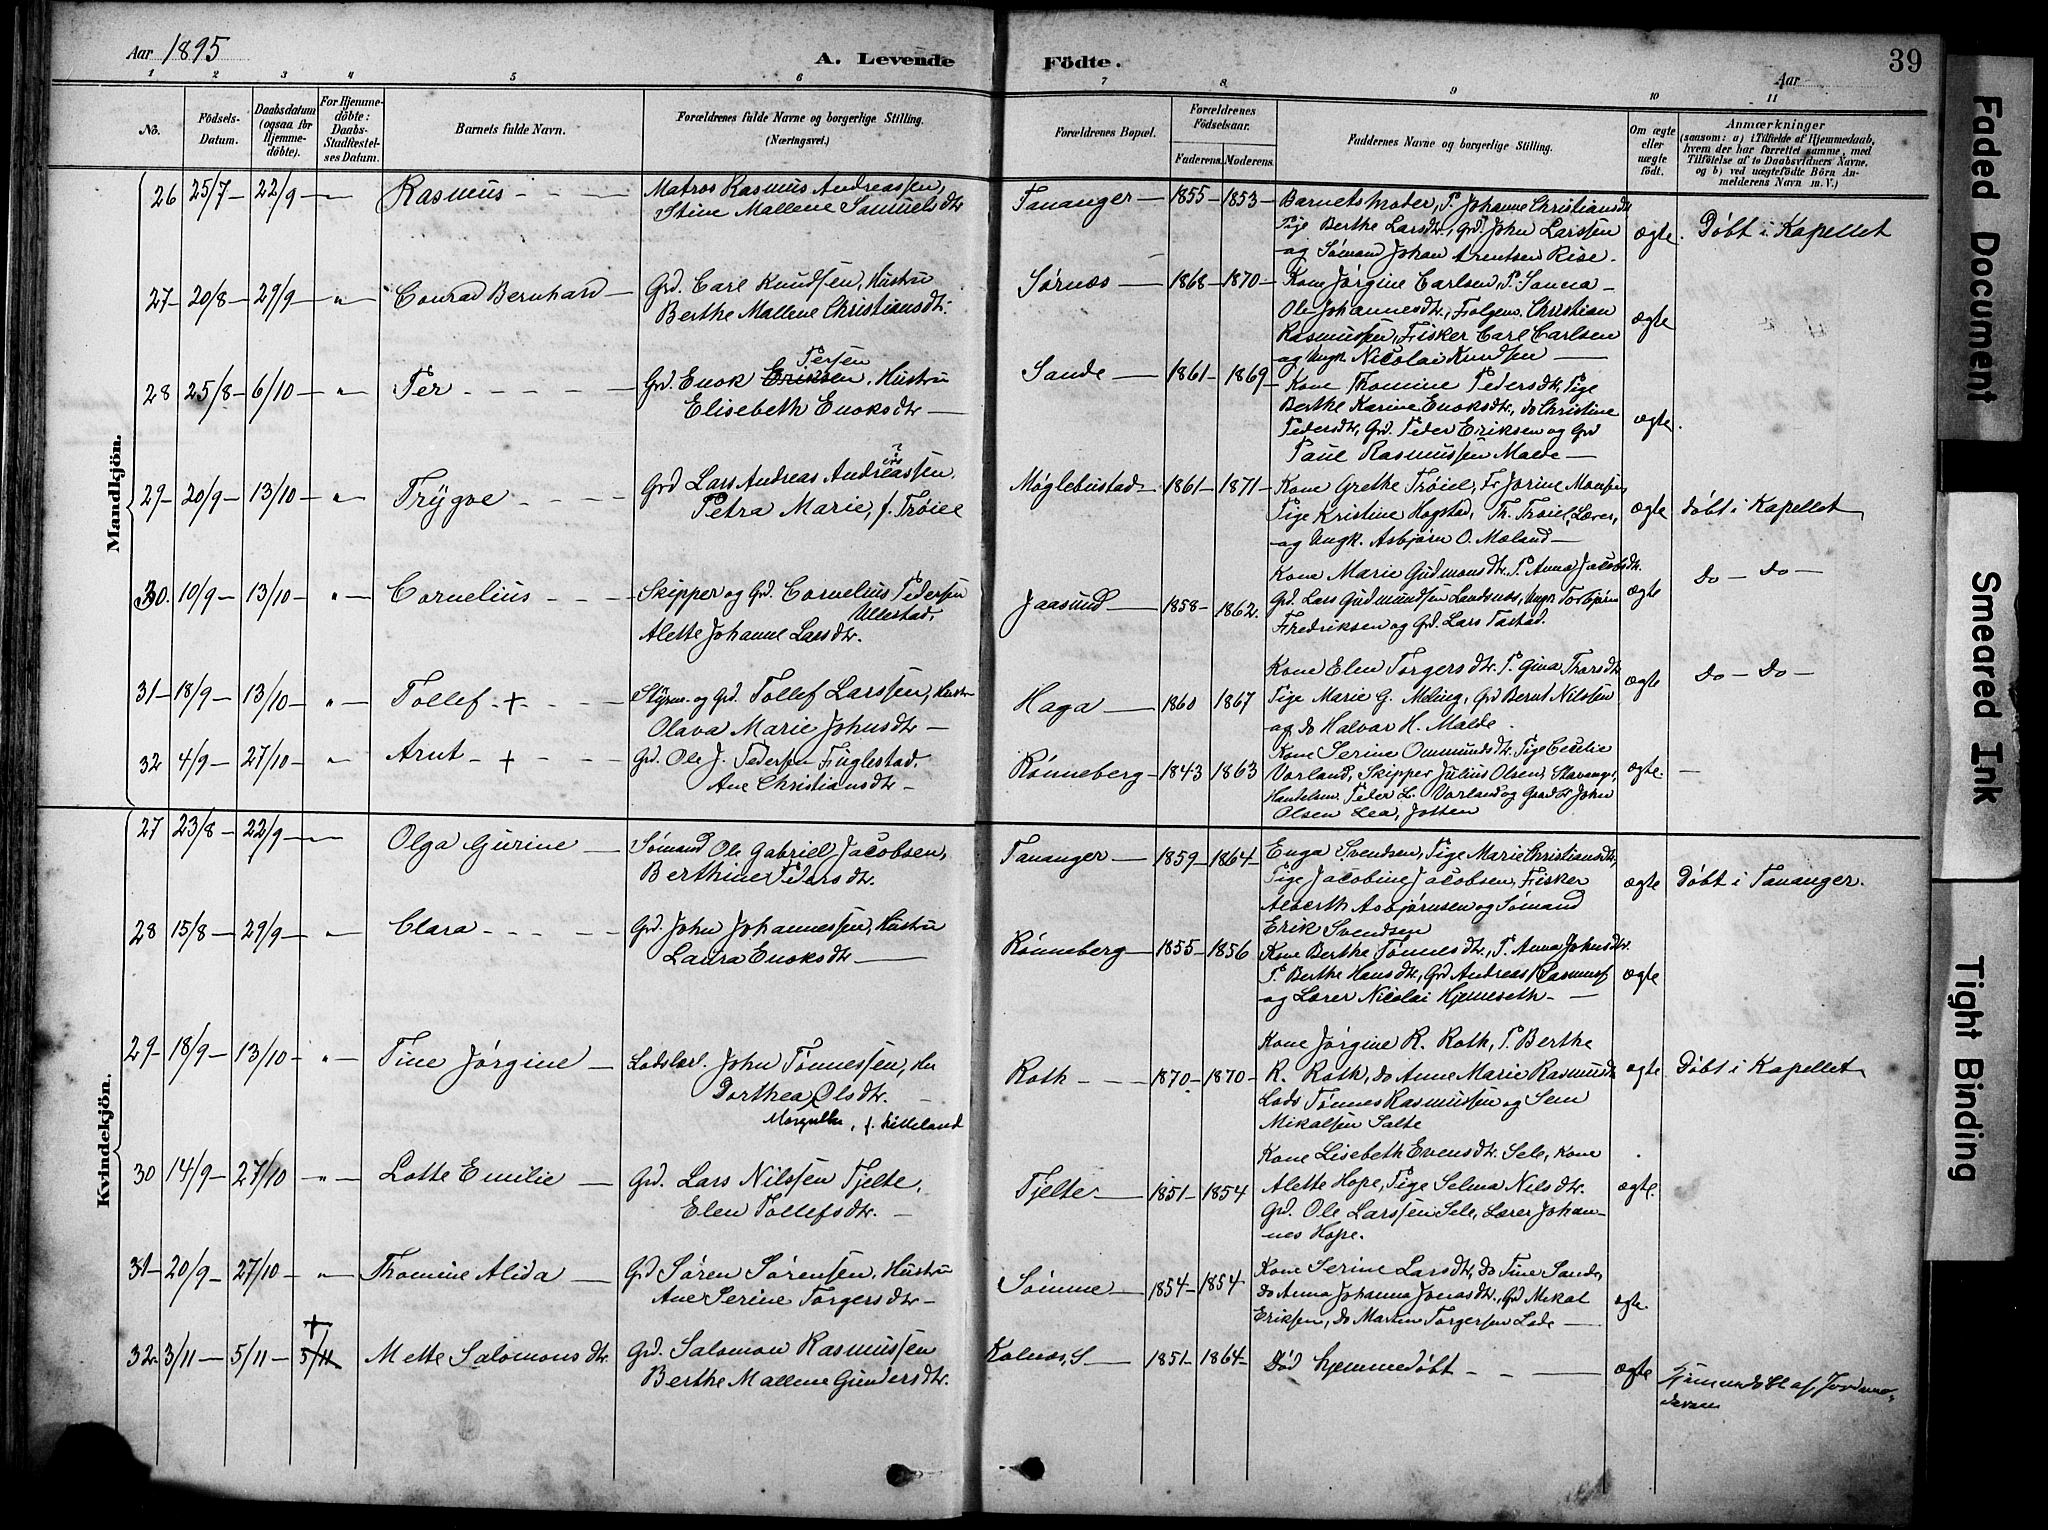 Aar 1895
A. Levende Födte.
39
Aar
1 2 3 4 5 6 7 8 9 10 11
No.
Födsels-Datum.
Daabsdatum (ogsaa for Hjemmedöbte).
For Hjemmedöbte: Daabs-Stadfæstelses Datum.
Barnets fulde Navn.
Forældrenes fulde Navne og borgerlige Stilling. (Næringsvei.)
Forældrenes Bopæl.
Forældrenes Födselsaar.
Faderens. Moderens.
Faddernes Navne og borgerlige Stilling.
Om ægte eller uægte födt.
Anmærkninger
(saasom: a) i Tilfælde af Hjemmedaab, hvem der har forrettet samme, med Tilföielse af to Daabsvidners Navne, og b) ved uægtefödte Börn Anmelderens Navn m. V.)
Mandkjön.
26 25/7 22/9 " Rasmus
Matros Rasmus Andreassen,
Stine Mallene Samuelsdtr
Tananger 1855 1853
Barnets Moder, P. Johanne Christiansdtr
Tige Berthe Larsdtr, Grd. John Larssen
og Sømand Johan Arentsen Rise.
ægte. Døbt i Kapellet
27 20/8 29/9 " Conrad Bernhard
Grd. Carl Knudsen, Hustru
Berthe Mallene Christiansdtr.
Sørnæs 1868 1870
Kone Jørgine Carlsen, P. Sanna
Ole Johannesdtr, Folgem. Christian
Rasmussen, Fisker Carl Carlsen
og Ungk. Nicolai Knudsen
ægte
28 25/8 6/10 " Per
Grd Enok Eriksen Persen, Hustru
Elisebeth Enoksdtr
Sande 1861 1869
Kone Thomine Pedersdtr, Tige
Berthe Karine Enoksdtr, do Christine
Pedersdtr, Grd. Peder Eriksen og Grd
Paul Rasmussen Malde
ægte.
29 20/9 13/10 " Trygve
Grd Lars Andreas Andreassen.
Petra Marie, f. Trøiel
Møglebustad 1861 1871
Kone Grethe Trøiel, Fr Jorine Monsen
Tige Kristine Hogstad, Th. Trøiel, Lærer,
og Ungk. Asbjørn O. Mæland
ægte Døbt i Kapellet
30. 10/9 13/10 " Cornelius
Skipper og Grd. Cornelius Pedersen
Ullestad,
Alette Johanne Larsdtr.
Jaasund 1858 1862.
Kone Marie Gudmonsdtr. P. Anna Jacobsdtr.
Grd. Lars Gudmundsen Landsnæs, Ungk Torbjørn
Fredriksen og Grd. Lars Tastad.
ægte Do - Do -
31 18/9 13/10 " Tollef +
Styrm. og Grd. Tollef Larssen, Hustru
Olava Marie Johnsdtr
Haga 1860 1867
Kone Elen Torgersdtr. P. Gina Thorsdtr
Tige Marie G. Meling, Grd Bernt Nilssen
og do Halvar H. Malde.
ægte Do - Do -
32 4/9 27/10 " Arnt +
Grd. Ole J. Pedersen Fuglestad.
Ane Christiansdtr
Rønneberg 1843 1863
Kone Serine Ommundsdtr. Tige Cecilie
Vorland, Skipper Julius Olsen, Stavanger,
Handelsm. Peder L. Vorland og John
Olsen Lea, Jotten
ægte.
Kvindekjön.
27 23/8 22/9 Olga Gurine
Sømand Ole Gabriel Jacobsen,
Berthine Pedersdtr.
Tananger 1859 1864
Enga Svendsen, Tige Marie Christiansdtr,
Tige Jacobine Jacobsen, Fisker
Alberth Asbjørnsen og Sømand
Erik Svendsen
ægte Døbt i Tananger.
28 15/8 29/9 " Clara
Grd. John Johannessen, Hustru
Laura Enoksdtr
Rønneberg 1855 1856
Kone Berthe Tønnesdtr, P. Anna Johnsdtr.
P. Berthe Hansdtr, Grd Andreas Rasmuss
og Lærer Nicolai Hjemeseth
ægte
29 18/9 13/10 " Tine Jørgine
John Tønnessen, Hu
Dorthea Olsdtr.
Margrethe, f. Lilleland
Roth 1870 1870
Kone Jørgine R. Roth, P. Berthe
R. Roth, do Anne Marie Rasmusdtr
Lods Tønnes Rasmussen og Sem
Mikalsen Salte
ægte Døbt i Kapellet
30 14/9 27/10 " Lotte Emilie
Grd. Lars Nilssen Tjelte,
Elen Tollefsdtr.
Tjelte 1851 1854
Kone Lisebeth Evensdtr. Sele, Kone
Alette Hope, Tige Selma Nilsdtr.
Grd. Ole Larssen Sele, Lærer Johan-
nes Hope.
ægte.
31 20/9 27/10 " Thomine Alida
Grd Søren Sørensen, Hustru
Ane Serine Torgersdtr
Sømme 1854 1854
Kone Serine Larsdtr, do Tine Sande,
do Anna Johanna Jonasdtr., Grd Mikal
Eriksen, do Martin Torgersen Lode
ægte.
32 3/11 5/11 + 5/11 Mette Salomonsdtr
Grd. Salomon Rasmussen
Berthe Mallene Gundersdtr.
Kolnæs, S 1851 1864
Død hjemmedøbt
ægte Hjemmedøbt af Jordmo-
deren
Faded Document
Smeared Ink
Tight Binding